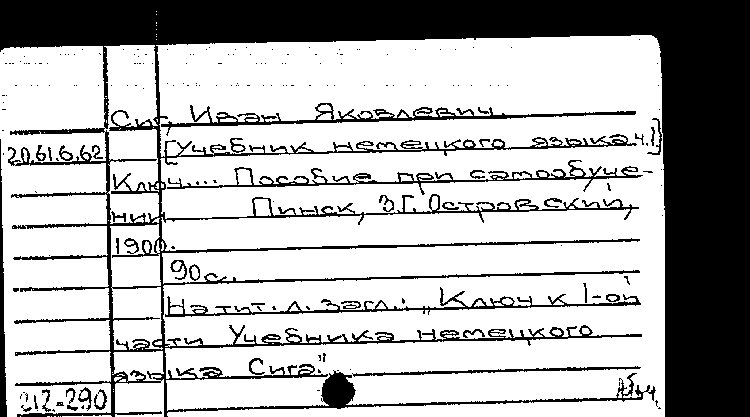 Сиг, Иван Яковлевич.
20.61.6.62 [Учебник немецкого языка ч.1]
Ключ.... Пособие при самообуче-
нии. Пинск, З.Г. Островский,
1900.
90 с.
На тит. л. загл.: „Ключ к 1-ой
части Учебника немецкого
языка Сига."
212-290